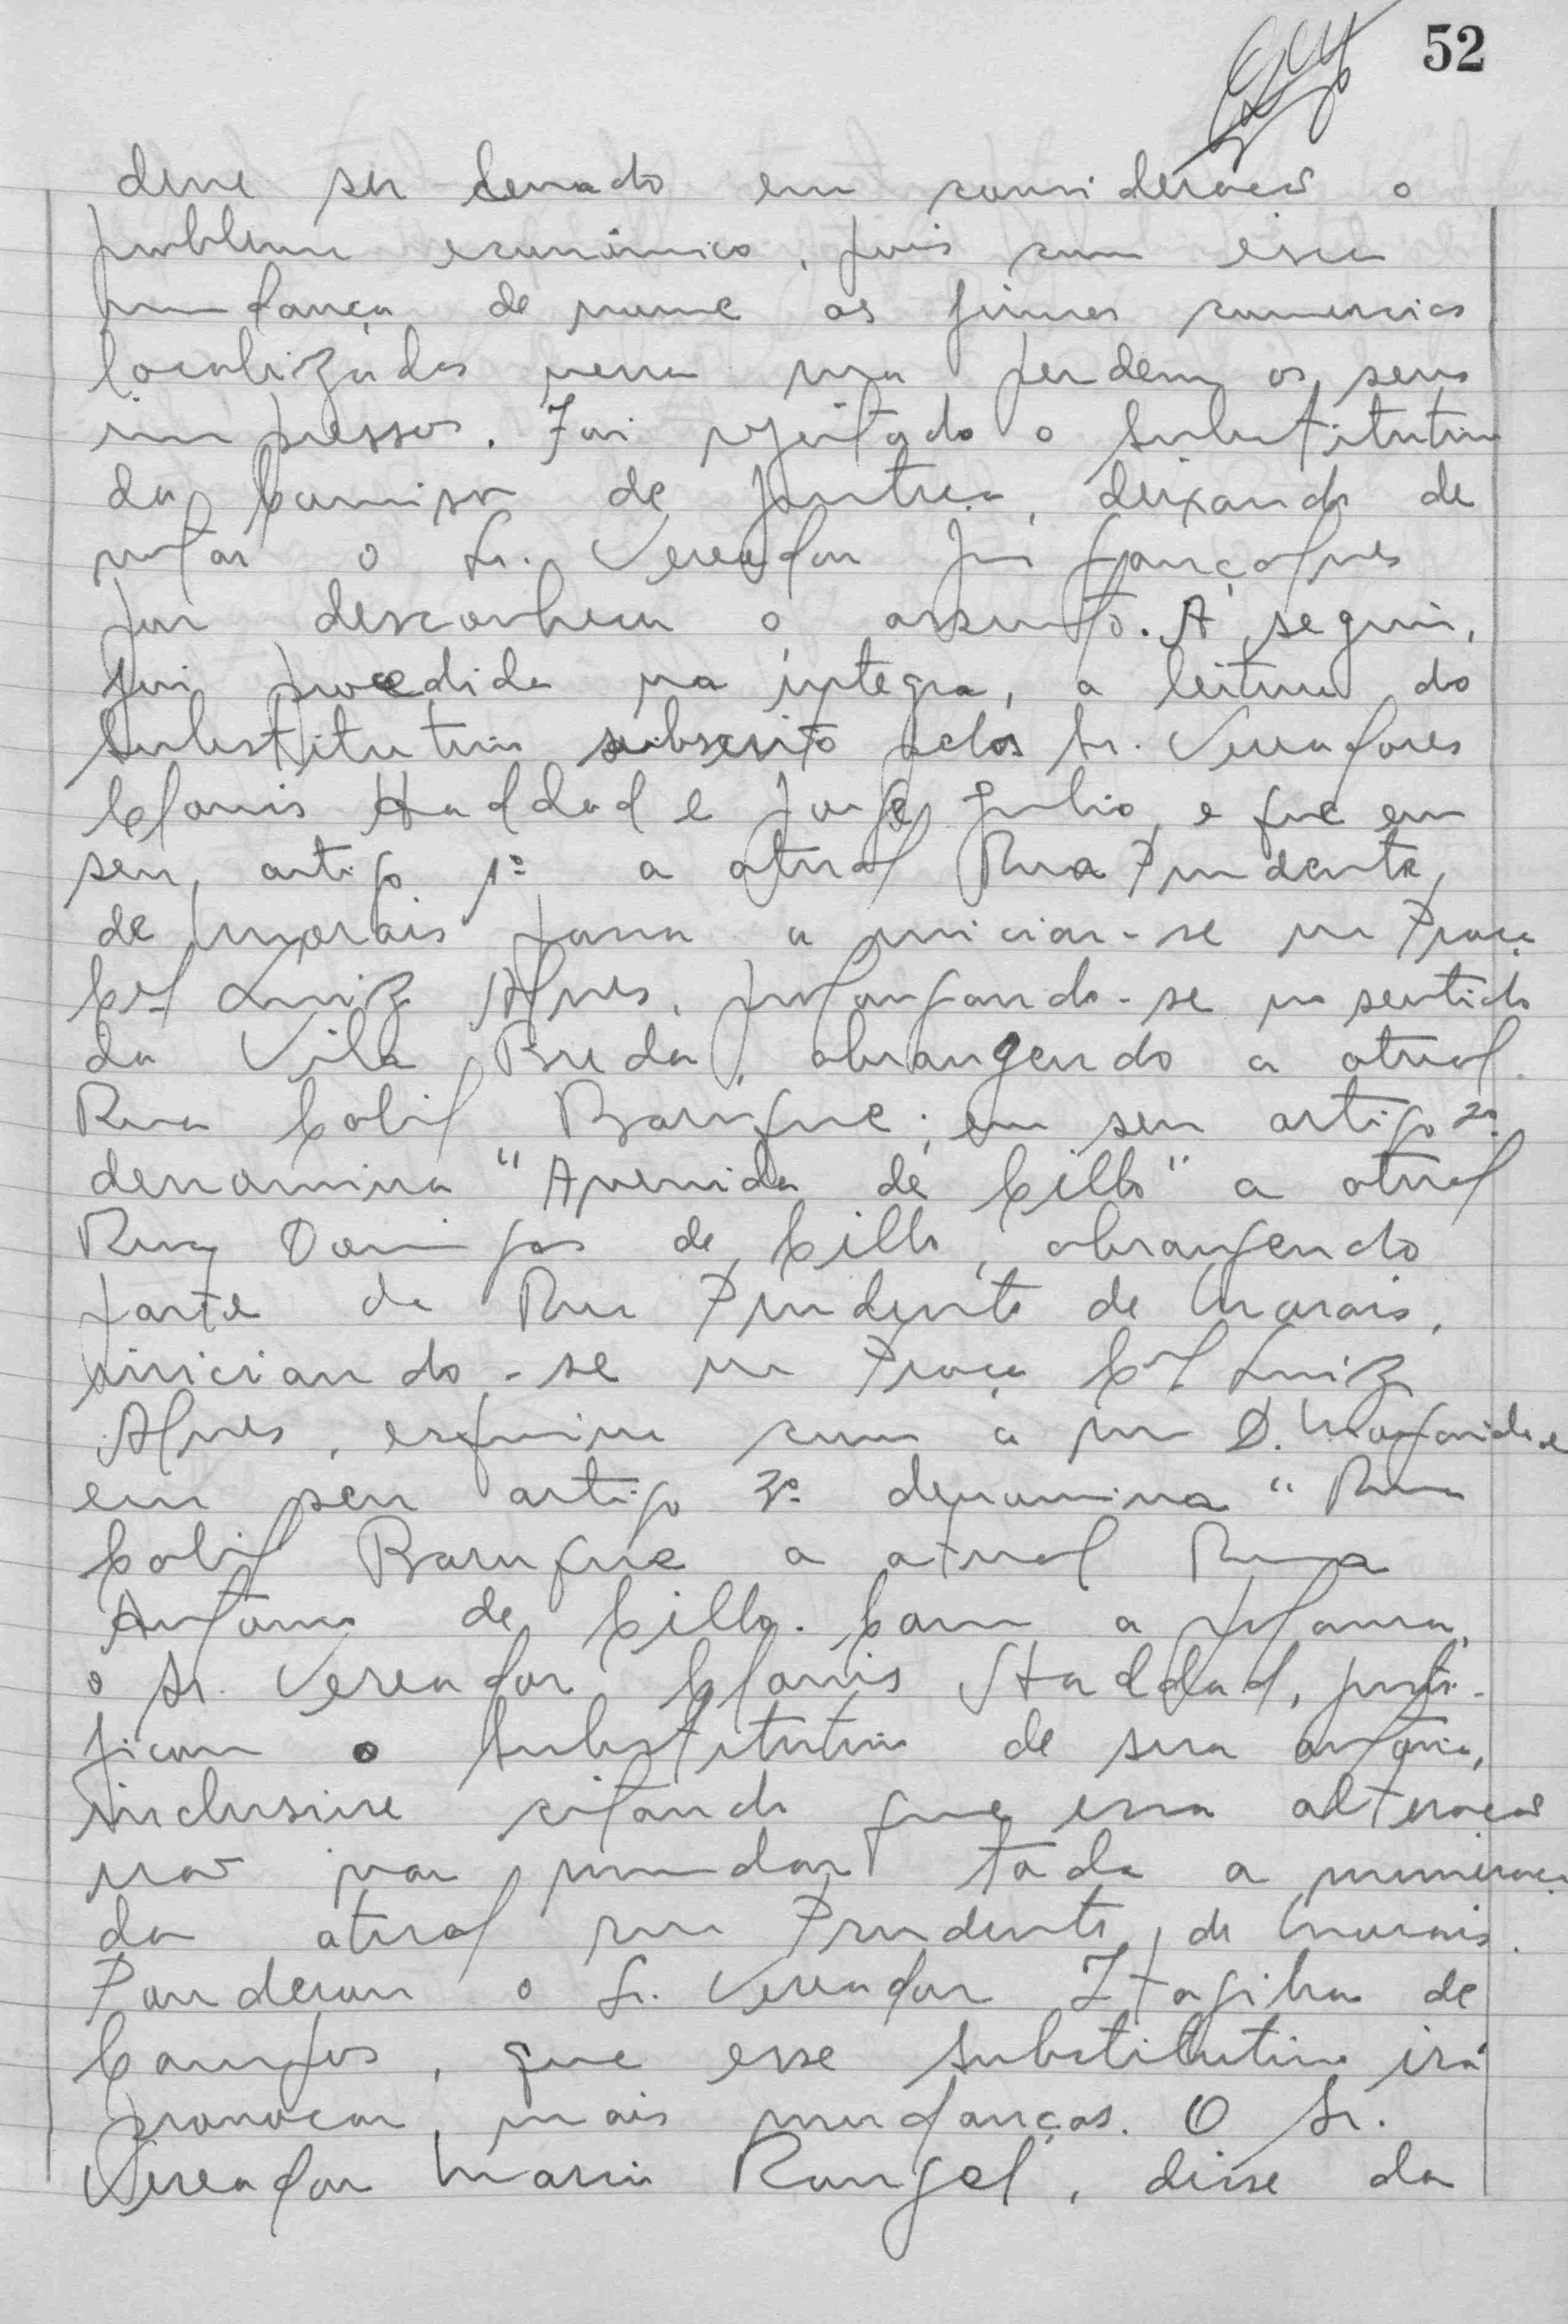 52
deve ser levado em consideração o
problema econômico, pois com essa
mudança de nome as firmas comerciais
localizadas nessa rua perdem os seus
impressos. Foi rejeitado o Substitutivo
da Comissão de Justiça, deixando de
votar o Sr. Vereador Gonçalves
por desconhecer o assunto. A seguir,
foi procedida na íntegra, a leitura do
Substitutivo subscrito pelos Sr. Vereadores
Clovis Haddad e Jorge Julio, e que em
seu artigo 1º a atual Rua Prudente
de Morais passa a iniciar-se na Praça
Cel Luiz Alves, prolongando-se no sentido
da Vila Breda, abrangendo a atual
Rua Calil Baruque; em seu artigo 2º
denomina "Avenida de Cillo" a atual
Rua Domingos de Cillo, abrangendo
parte da Rua Prudente de Morais,
iniciando-se na Praça Cel Luiz
Alves, esquina com a rua D. Margarida e
em seu artigo 3º denomina "Rua
Calil Baruque a atual Rua
Antonio de Cillo. Com a palavra,
o Sr. Vereador Clovis Haddad, justi-
ficou o Substitutivo de sua autoria,
inclusive citando que essa alteração
não vai mudar toda a numeração
da atual rua Prudente de Morais.
Ponderou o Sr. Vereador Itagiba de
Campos, que esse substitutivo irá
provocar mais mudanças. O Sr.
Vereador Mario Rangel, disse da